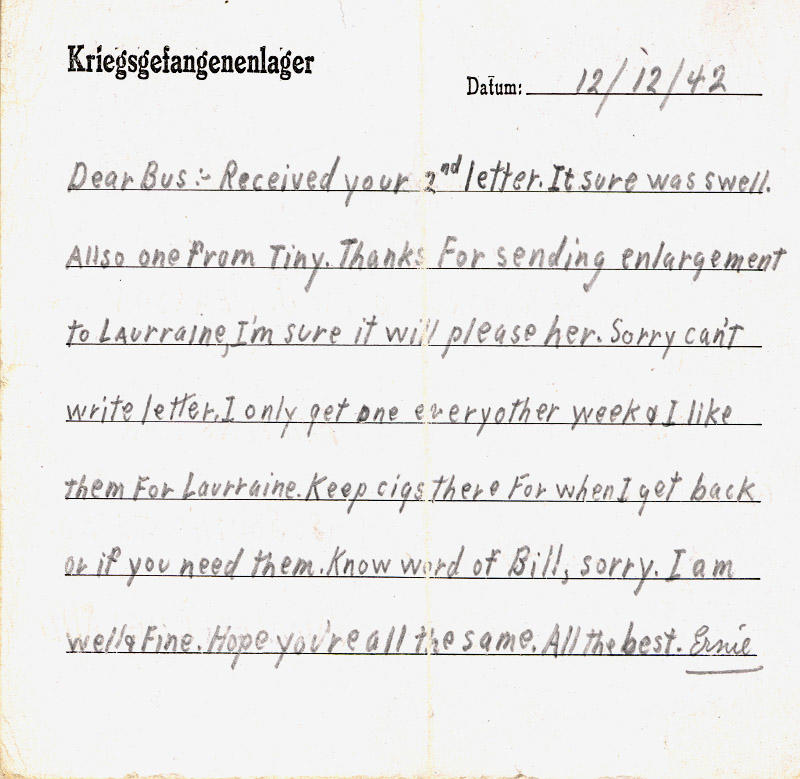 Kriegsgefangenenlager
Datum: 12/12/42
Dear Bus:- Received your 2nd letter. It sure was swell.
Allso one from Tiny. Thanks For sending enlargement
to Laurraine, I'm sure it will please her. Sorry can't
write letter, I only get one everyother week & I like
them For Laurraine. Keep cigs there For when I get back
or if you need them. Know word of Bill, sorry. I am
well & Fine. Hope you're all the same. All the best. Ernie